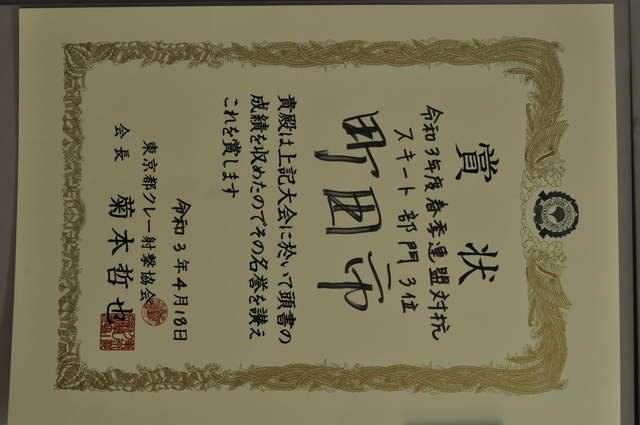 賞状
令和3年度春季連盟対抗
スキート部門3位
町田市
貴殿は上記大会に於いて頭書の
成績を収めたのでその名誉を讃え
これを賞します
令和3年4月18日
東京都クレー射撃協会
会長 菊本哲也